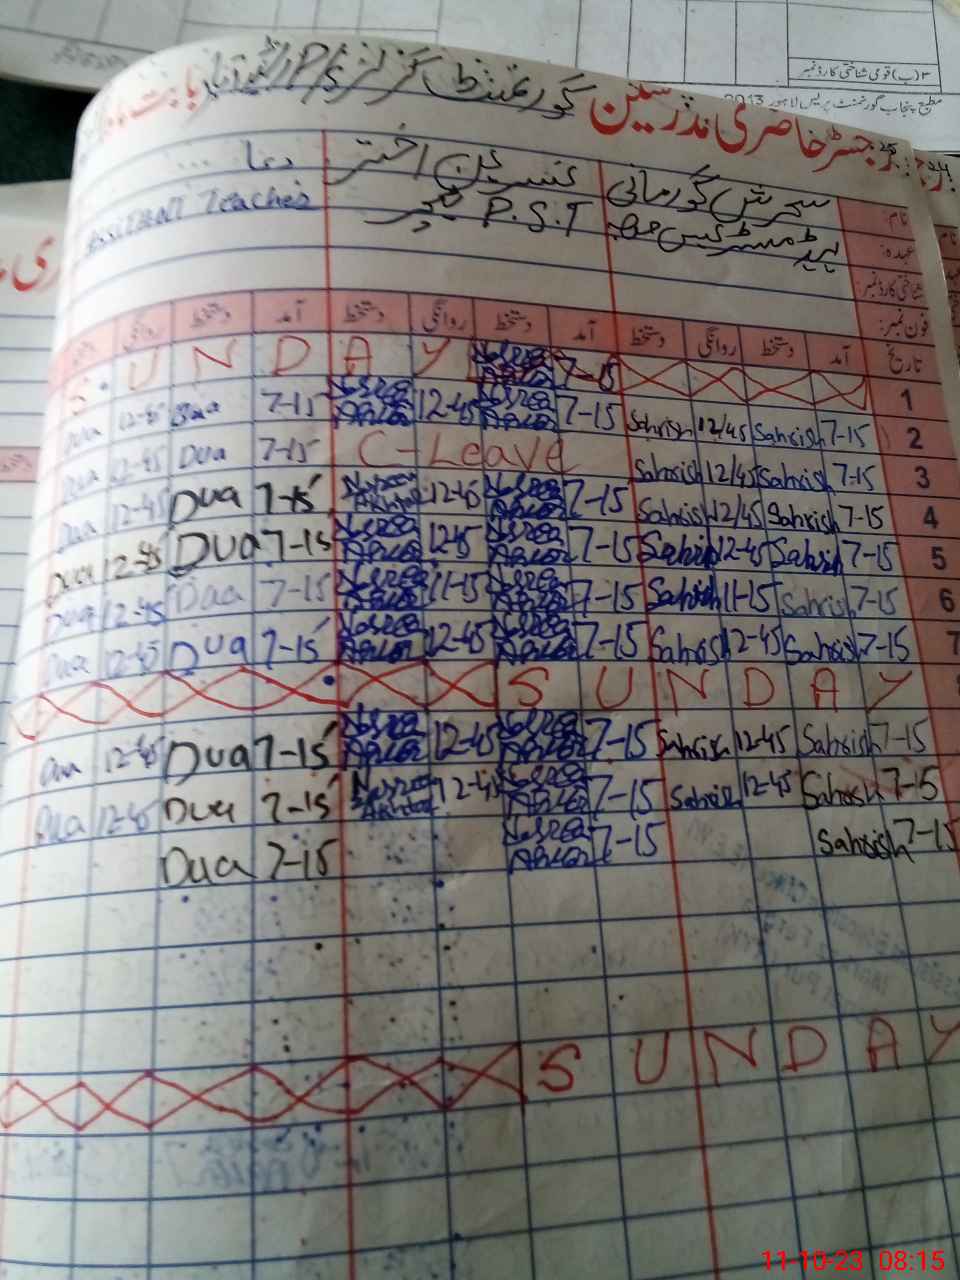 ۳(ب) قومی شناختی کارڈ نمبر
مطبع پنجاب گورنمنٹ پریس لاہور 2013
رجسٹر حاضری مدرسین گورنمنٹ گرلز P/S بابت ماہ
نام: سحرش گورمانی نسرین اختر دعا
عہدہ: ہیڈ مسٹریس P.S.T ٹیچر Assistant Teacher
شناختی کارڈ نمبر:
فون نمبر:
تاریخ آمد دستخط روانگی دستخط آمد دستخط روانگی دستخط آمد دستخط روانگی
1 7-15 S U N D A Y
2 7-15 Sahrish 12/45 Sahrish 7-15 12-45 7-15 Dua 12-45 Dua
3 7-15 Sahrish 12/45 Sahrish C-Leave 7-15 Dua 12-45 Dua
4 7-15 Sahrish 12/45 Sahrish 7-15 12-45 7-15 Dua 12-45 Dua
5 7-15 Sahrish 12-45 Sahrish 7-15 12-45 7-15 Dua 12-45 Dua
6 7-15 Sahrish 11-15 Sahrish 7-15 11-15 7-15 Dua 12-45 Dua
7 7-15 Sahrish 12-45 Sahrish 7-15 12-45 7-15 Dua 12-45 Dua
S U N D A Y
7-15 Sahrish 12-45 Sahrish 7-15 12-45 7-15 Dua 12-45 Dua
7-15 Sahrish 12-45 Sahrish 7-15 12-45 Nasreen Akhtar 7-15 Dua 12-45 Dua
7-15 Sahrish 7-15 7-15 Dua
S U N D A Y
11-10-23 08:15